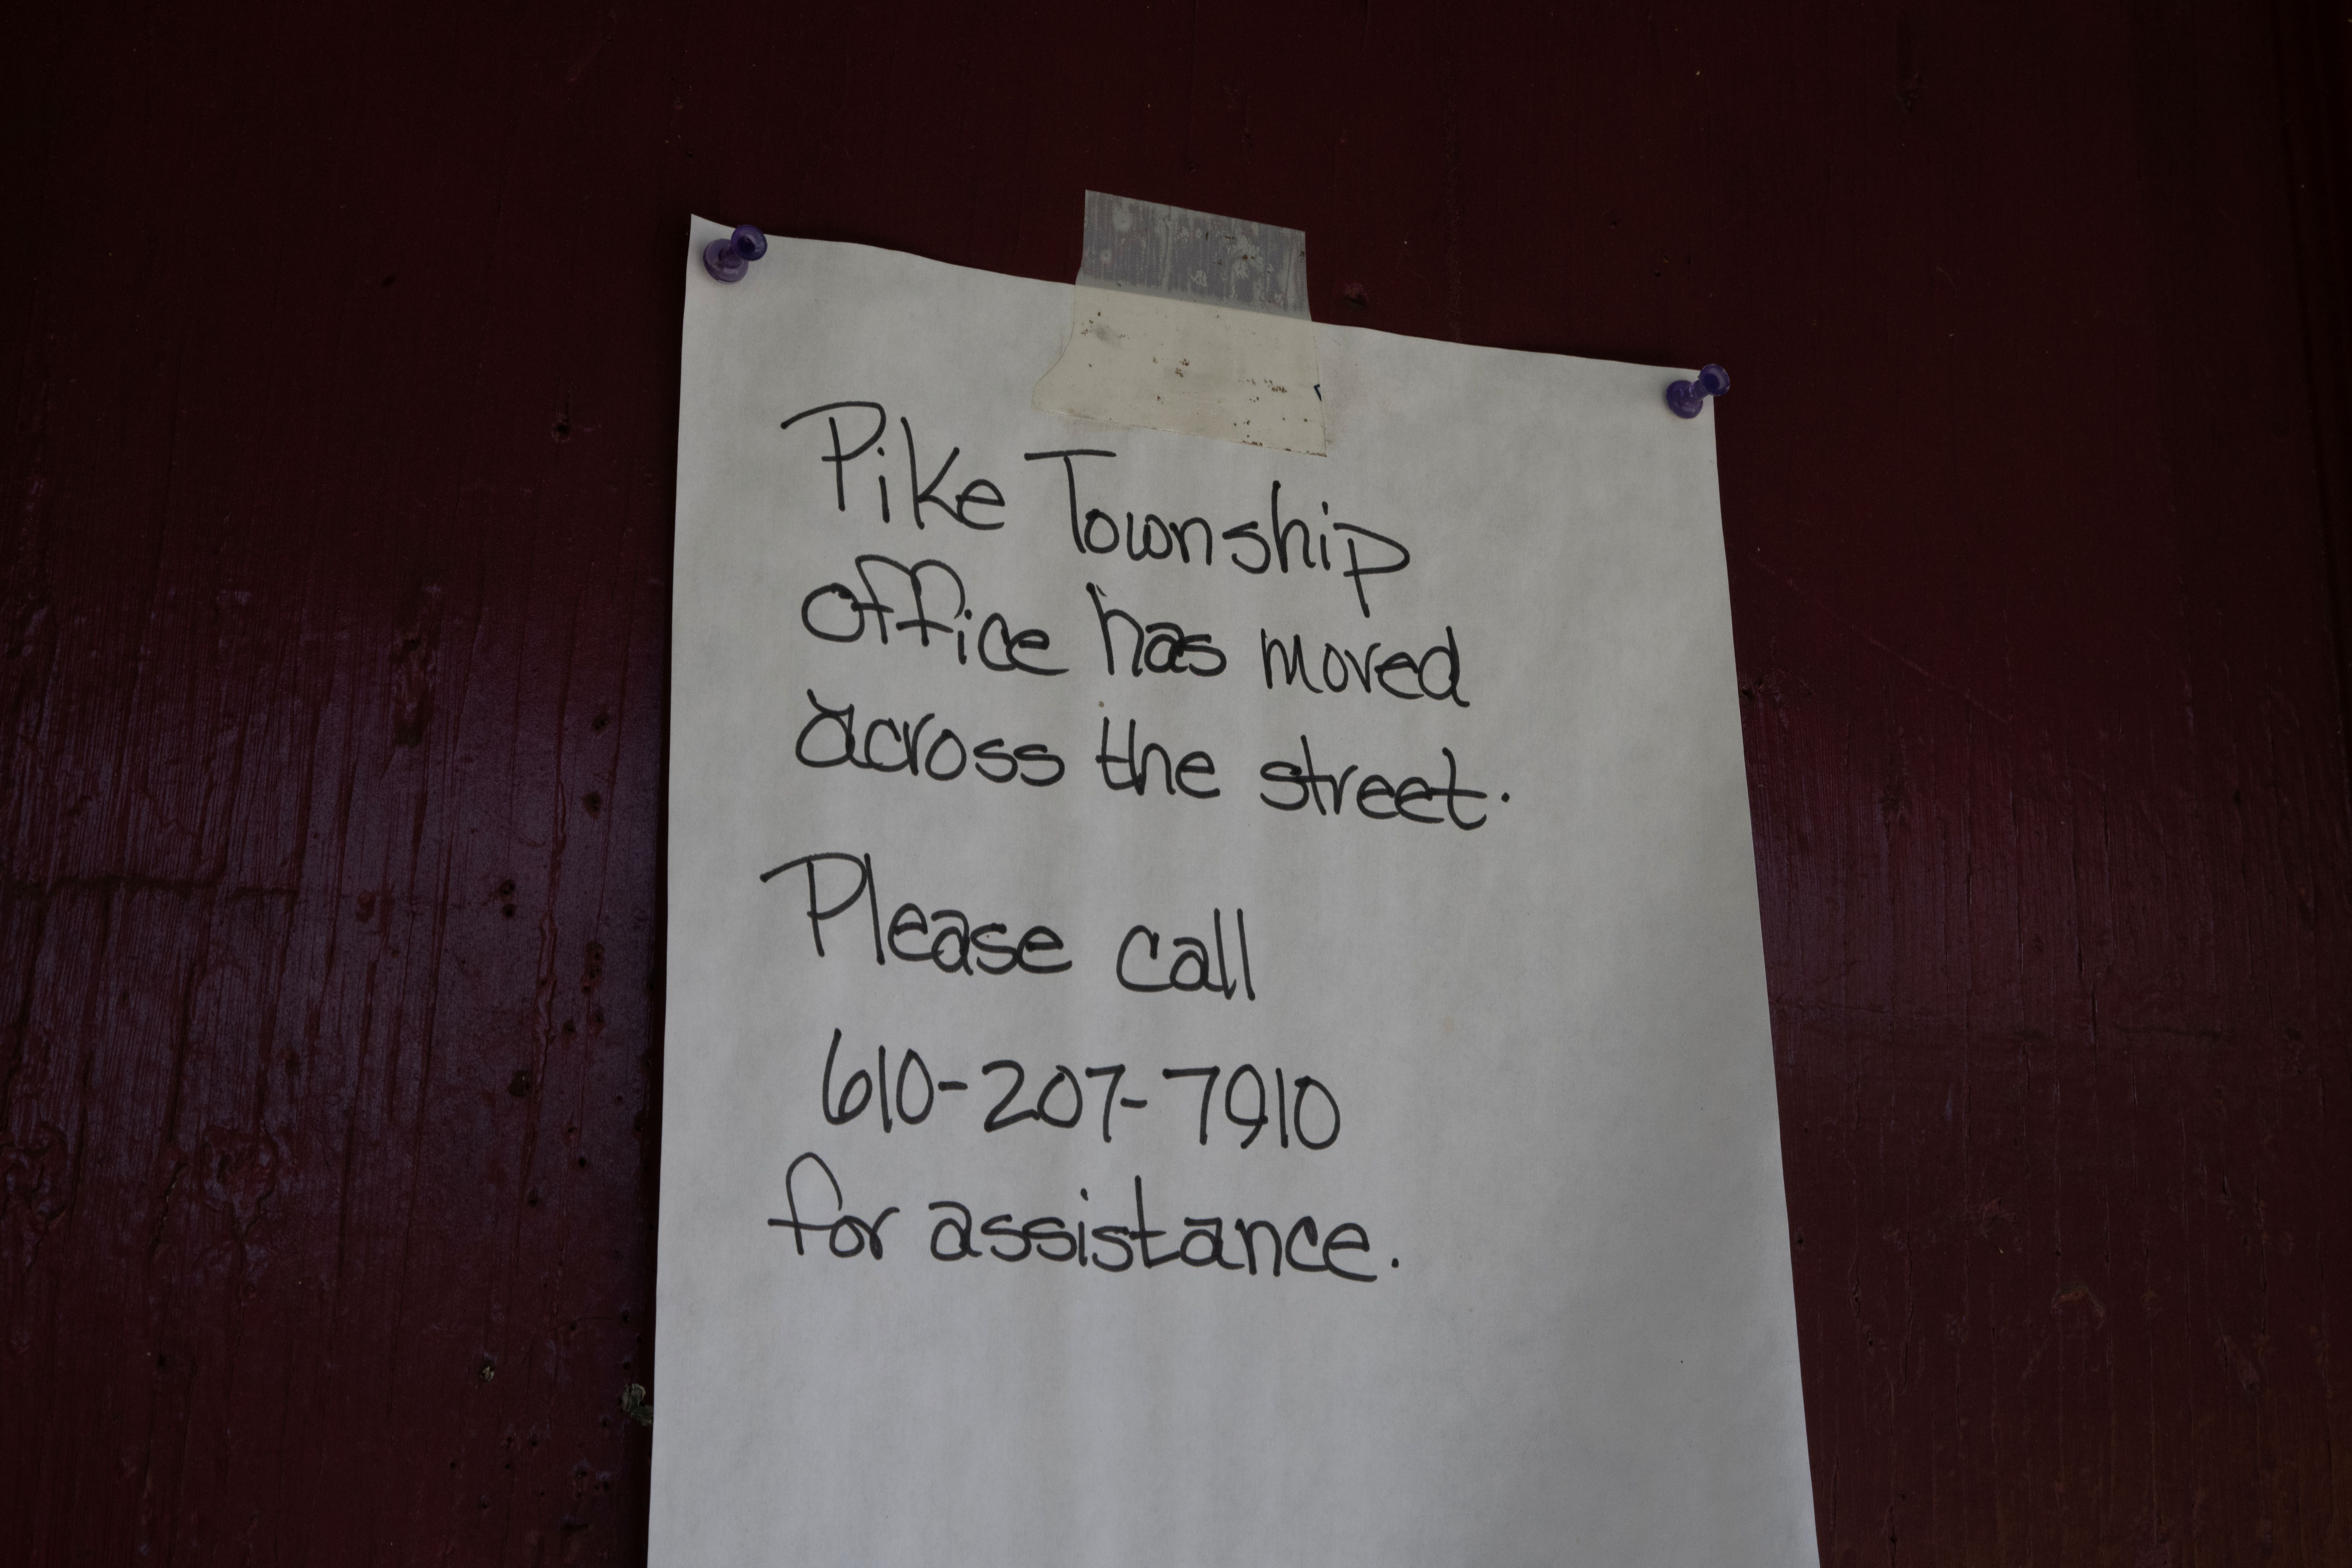 Pike Township
office has moved
across the street.
Please call
610-207-7910
for assistance.